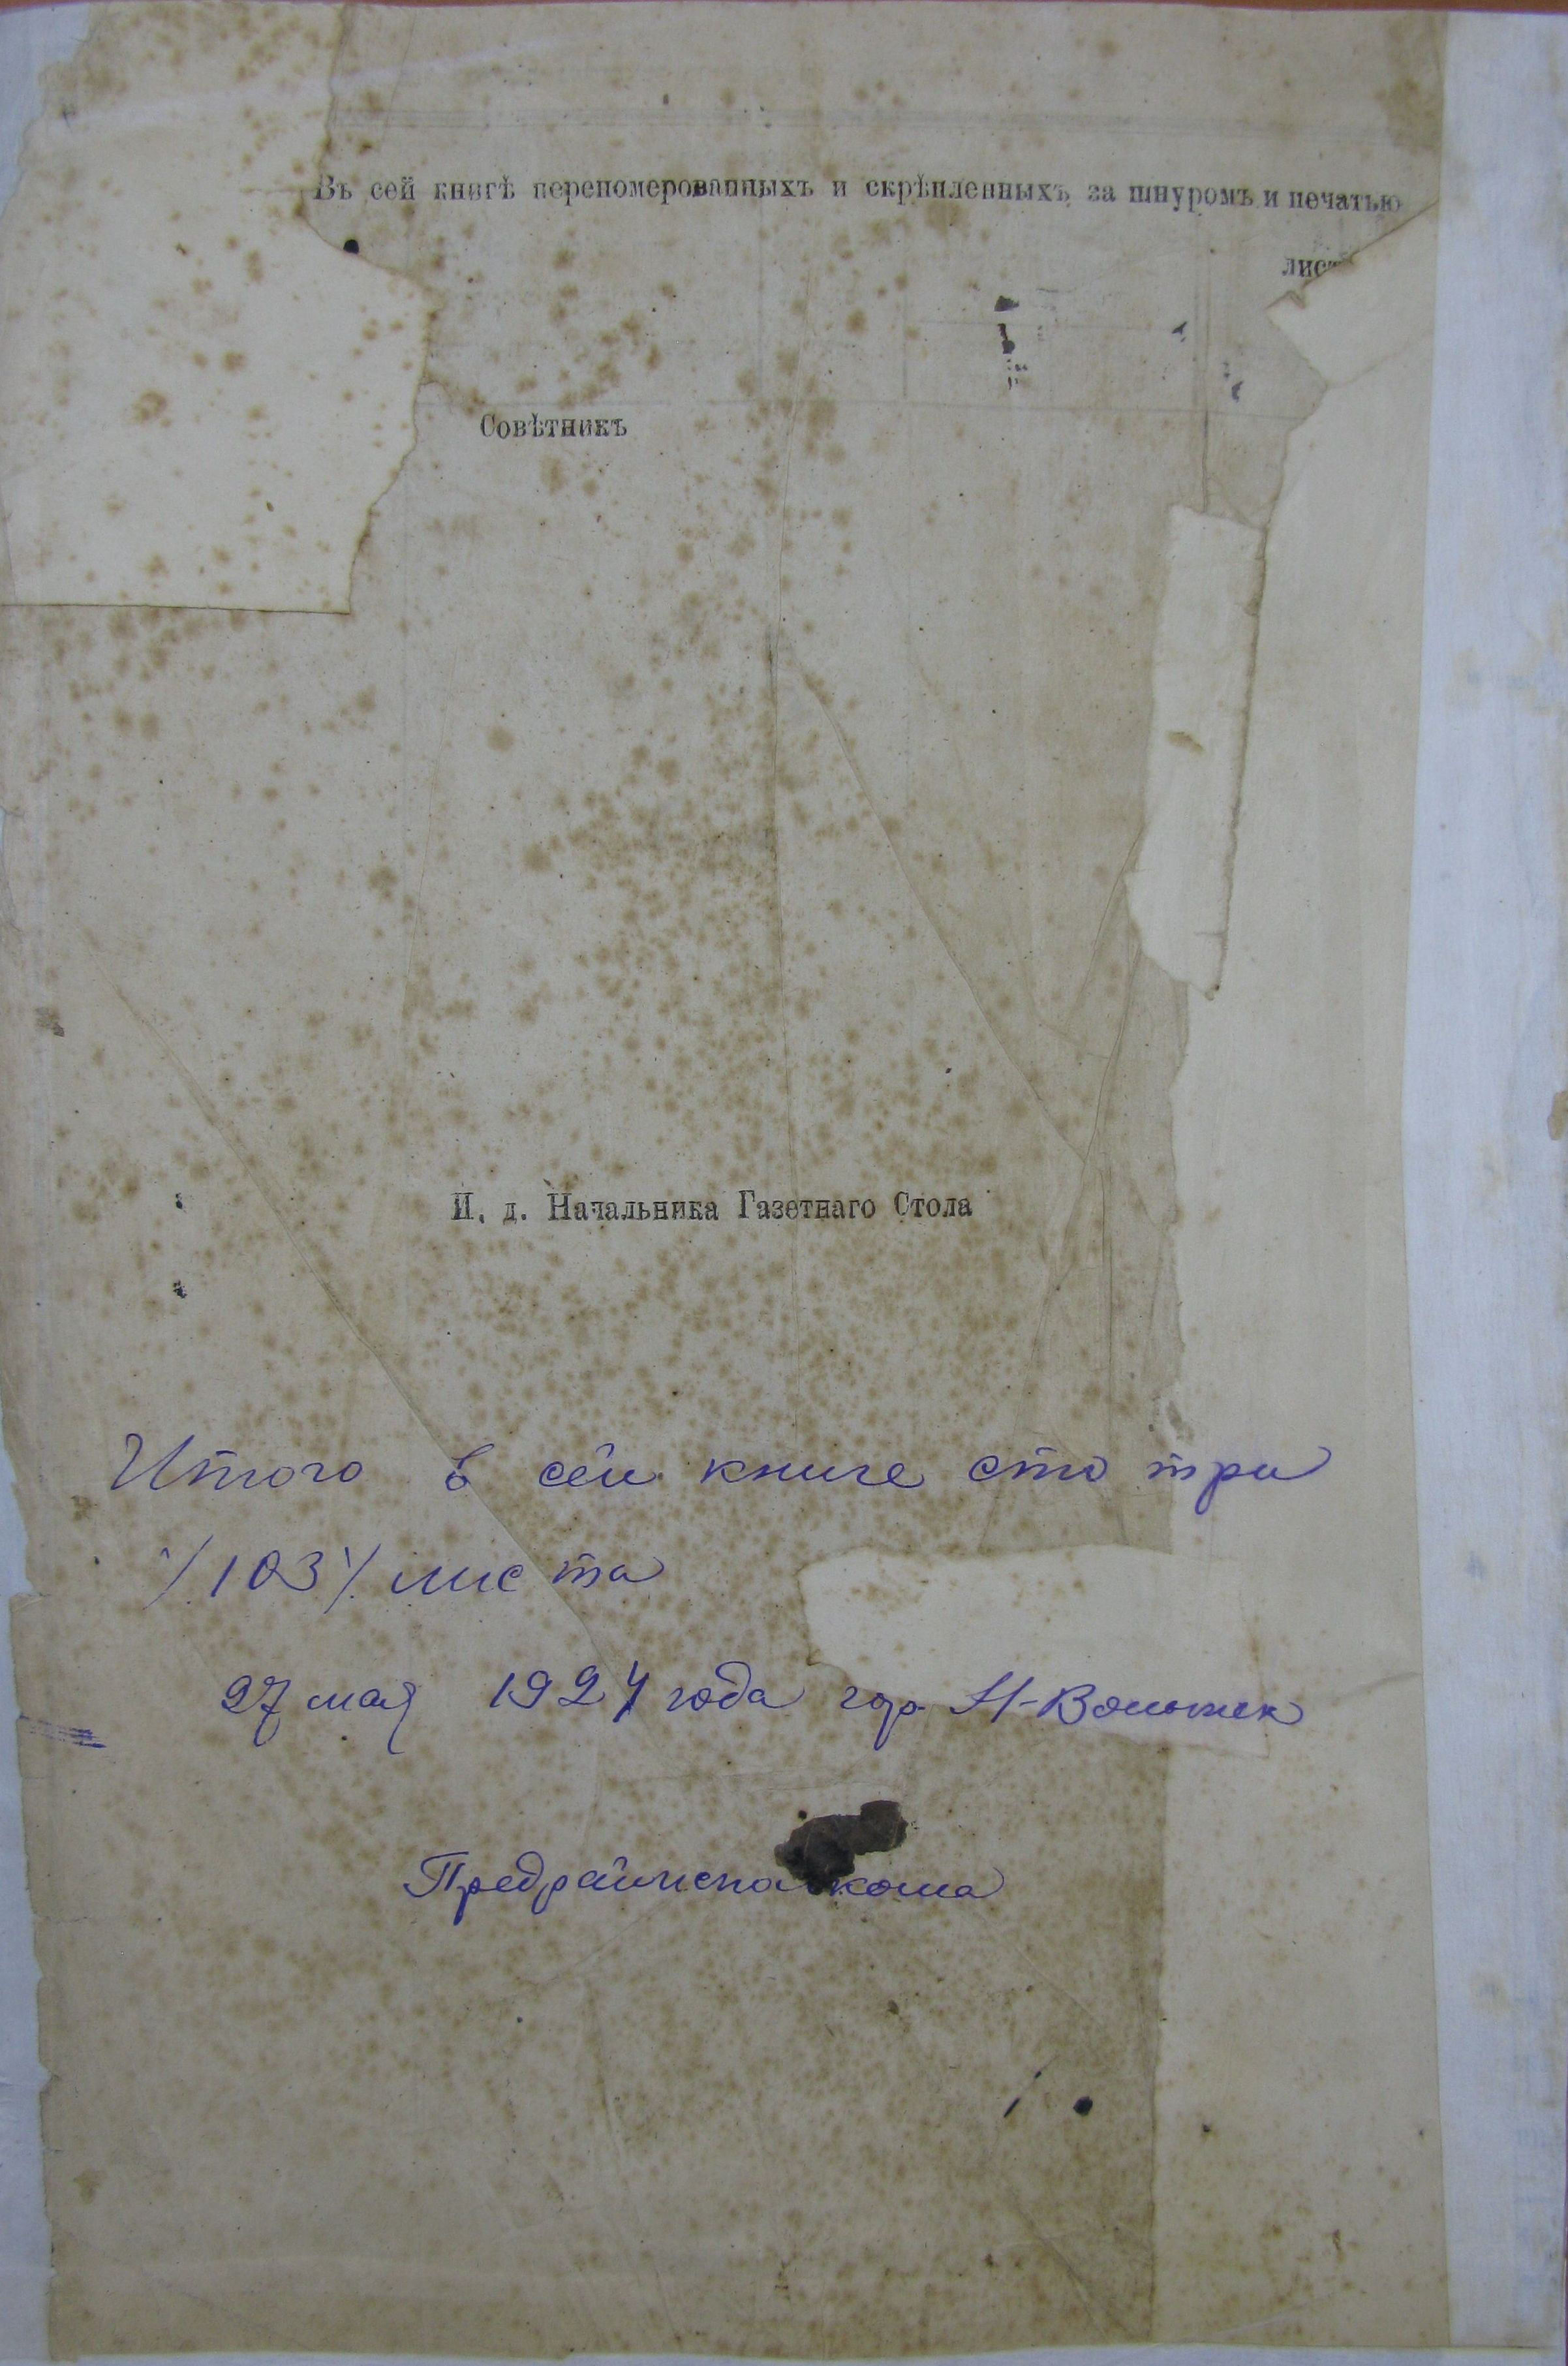 Въ сей книгѣ перепомерованныхъ и скрѣпленныхъ за шнуромъ и печатью
лист
Совѣтникъ
И. д. Начальника Газетнаго Стола
Итого в сей книге сто три
/103/ листа
27 мая 1924 года гор. Н-Волынск
Предрайиспо кома